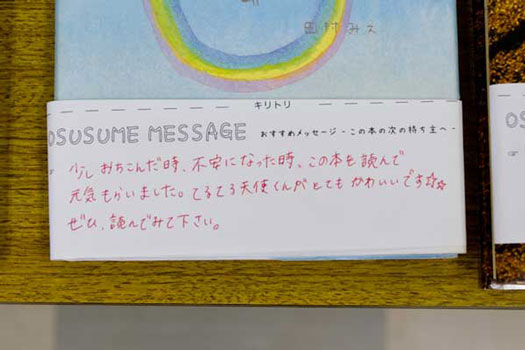 田村みえ
キリトリ
OSUSUME MESSAGE おすすめメッセージ-この本の次の持ち主へ-
少し おちこんだ時、不安になった時、この本を読んで
元気もらいました。てるてる天使くんがとても かわいいです☆☆
ぜひ、読んでみて下さい。